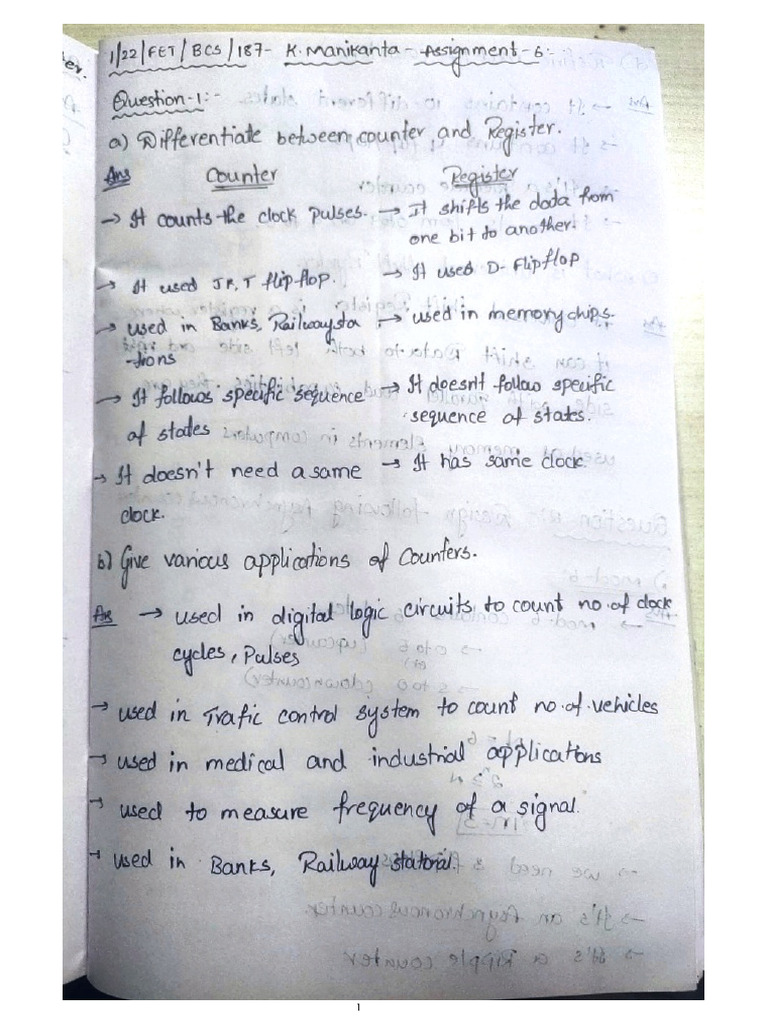 1/22/FET/BCS/187- K. Manikanta - Assignment-6:-
Question-1:-
a) Differentiate between counter and Register.
Ans Counter Register
→ It counts the clock pulses. → It shifts the data from
one bit to another.
→ It used JK, T flipflop. → It used D-Flipflop
→ used in Banks, Railwaysta → used in memory chips.
-tions
→ It follows specific sequence → It doesn't follow specific
of states sequence of states.
→ It doesn't need a same → It has same clock.
clock.
b) Give various applications of Counters.
Ans → used in digital logic circuits to count no. of clock
cycles, Pulses
→ used in Trafic control system to count no. of vehicles
→ used in medical and industrial applications
→ used to measure frequency of a signal.
→ used in Banks, Railway
1